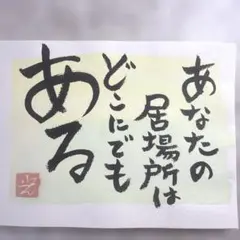 あなたの
居場所は
どこにでも
ある